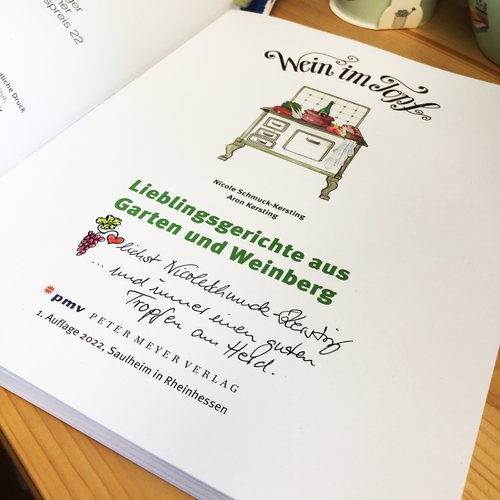 ger
ner
spreis 22
dliche Druck
tur.
Wein im Topf
Nicole Schmuck-Kersting
Aron Kersting
Lieblingsgerichte aus
Garten und Weinberg
lichst Nicole Schmuck-Kersting
... und immer einen guten
Tropfen am Herd.
pmv PETER MEYER VERLAG
1. Auflage 2022, Saulheim in Rheinhessen